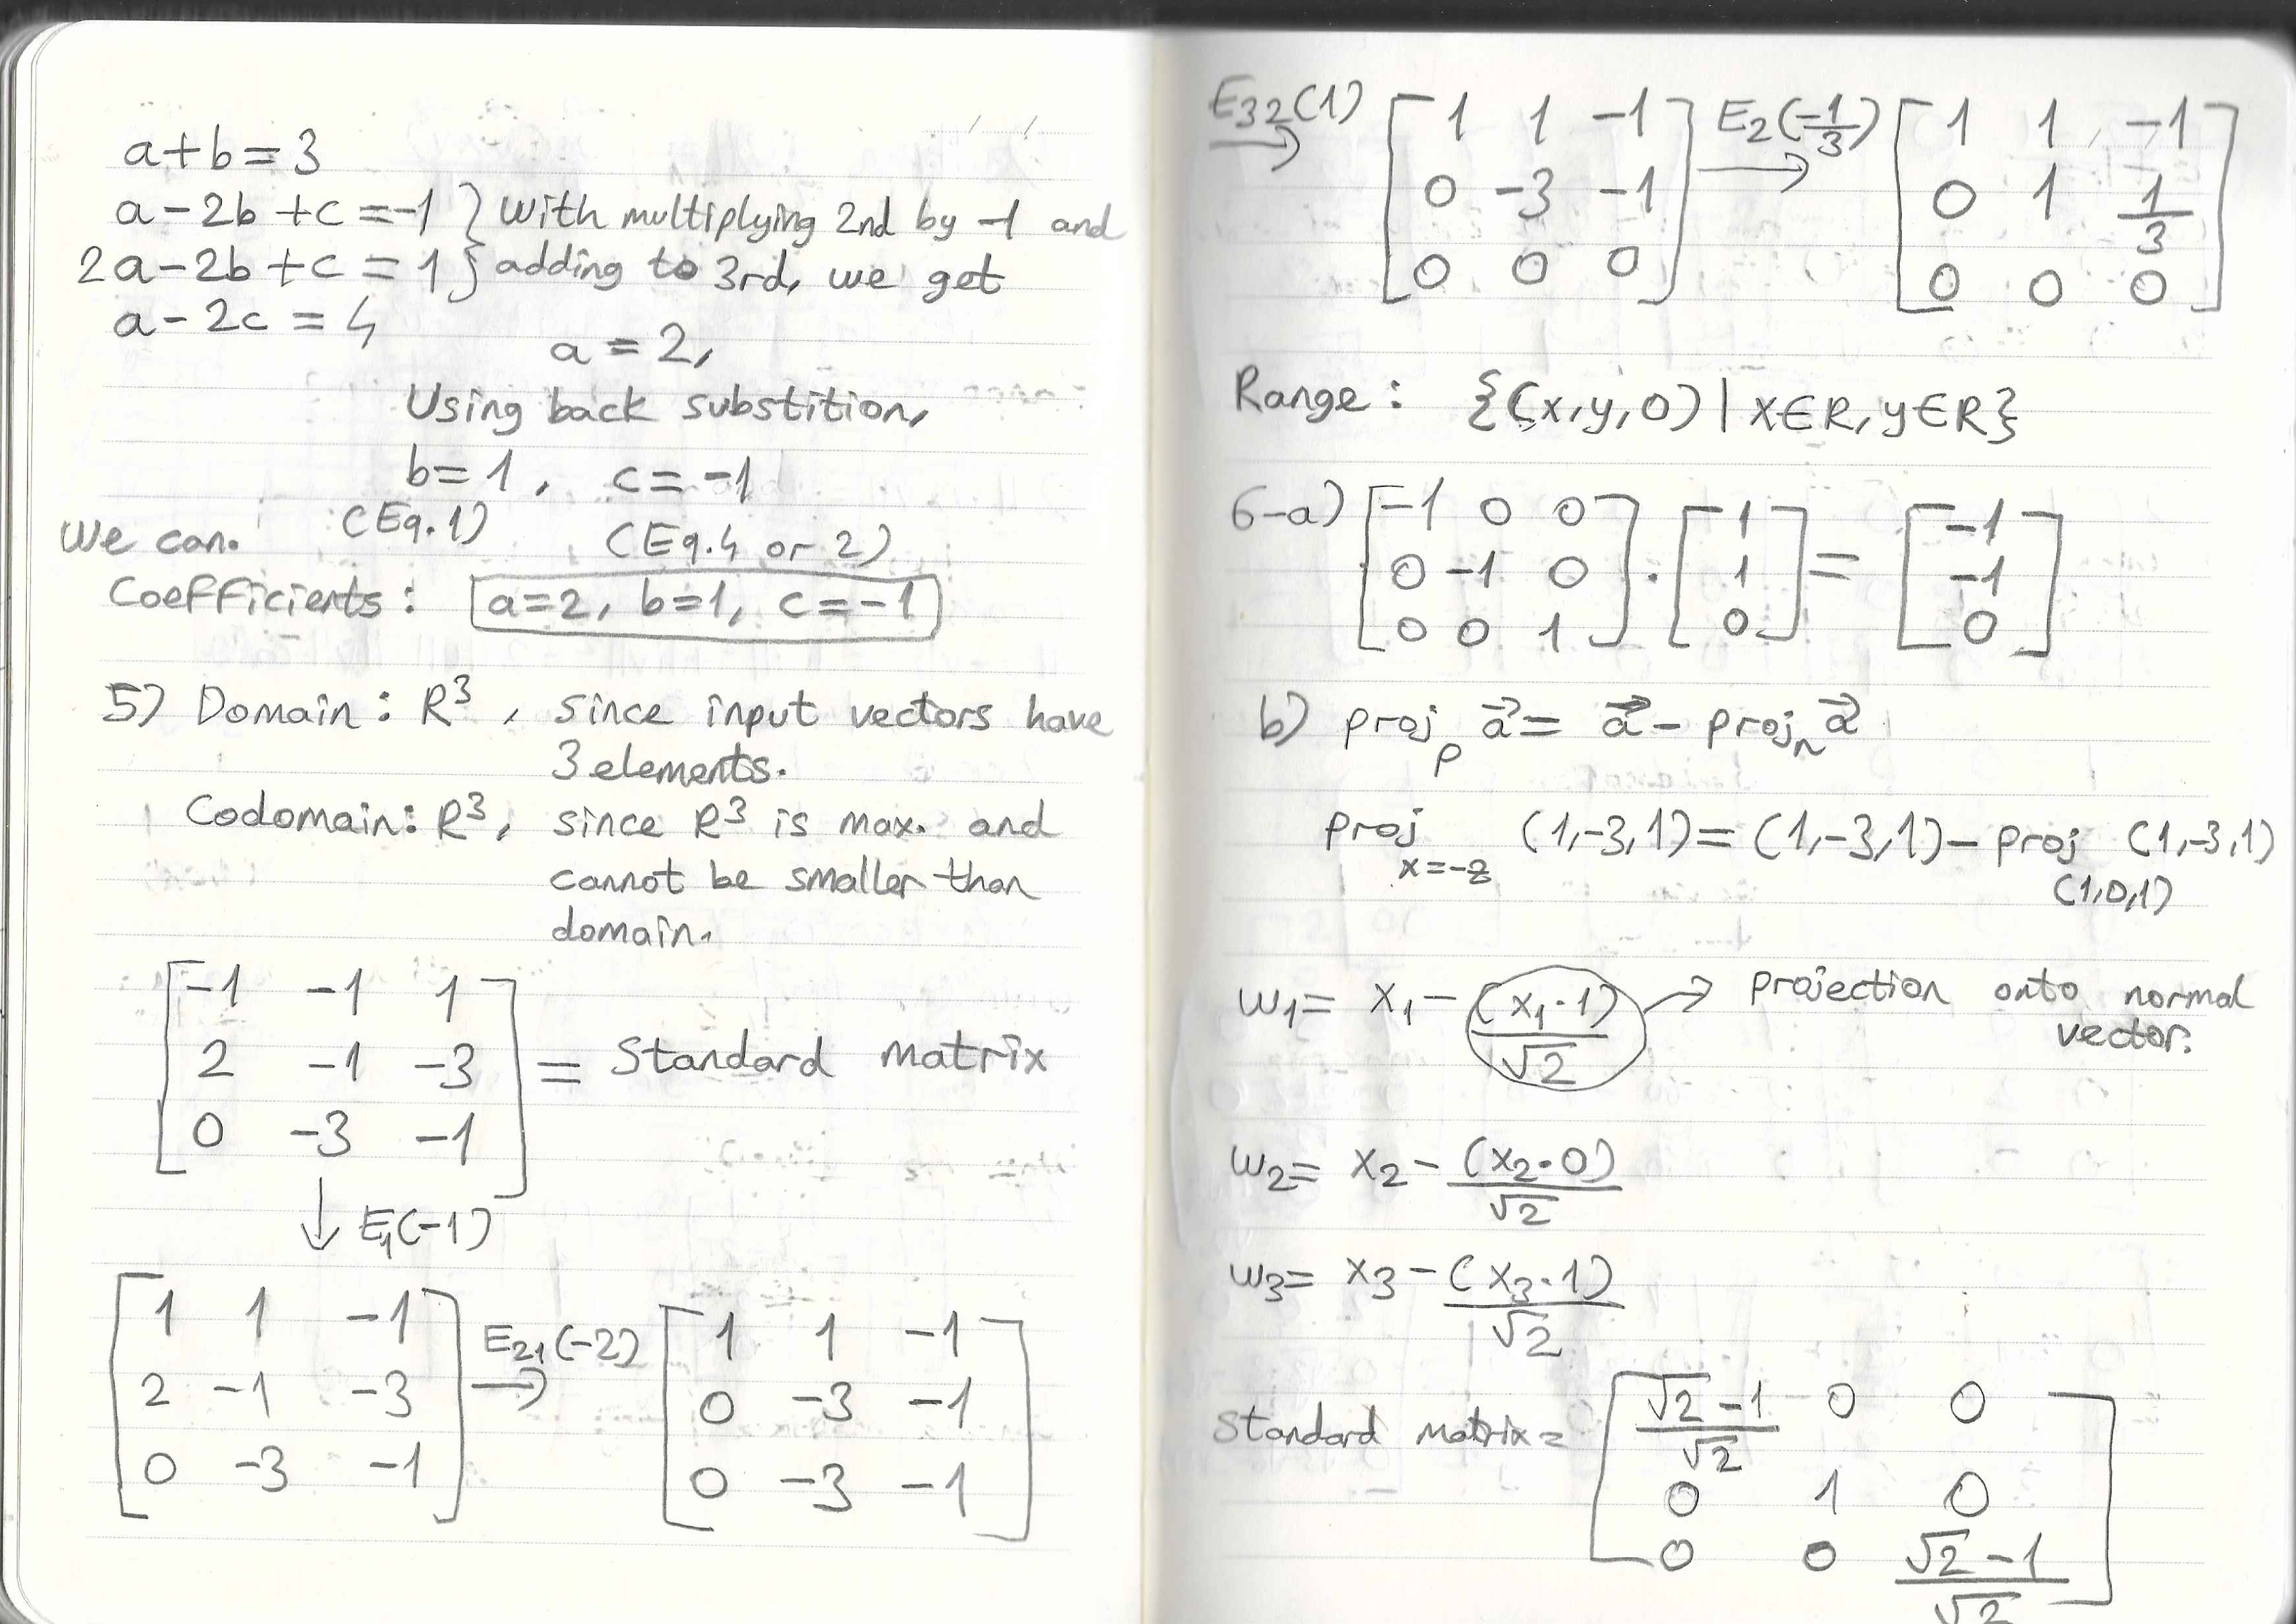 a+b=3
a-2b+c=-1 } with multiplying 2nd by -1 and
2a-2b+c=1 } adding to 3rd, we get
a-2c=4
a=2,
Using back substition,
b=1, c=-1
(Eq.1) (Eq.4 or 2)
We can.
Coefficients: a=2, b=1, c=-1
5) Domain: R³, since input vectors have
3 elements.
Codomain: R³, since R³ is max. and
cannot be smaller than
domain.
[-1 -1 1
2 -1 -3
0 -3 -1] = Standard matrix
↓ E₁(-1)
[1 1 -1
2 -1 -3
0 -3 -1]
E₂₁(-2) →
[1 1 -1
0 -3 -1
0 -3 -1]
E₃₂(1) →
[1 1 -1
0 -3 -1
0 0 0]
E₂(-1/3) →
[1 1 -1
0 1 1/3
0 0 0]
Range: {(x,y,0) | x∈R, y∈R}
6-a) [-1 0 0
0 -1 0
0 0 1] · [1
1
0] = [-1
-1
0]
b) proj_p a⃗ = a⃗ - proj_n a⃗
proj_{x=-z} (1,-3,1) = (1,-3,1) - proj_{(1,0,1)} (1,-3,1)
w₁ = x₁ - (x₁·1)/√2 → projection onto normal
vector.
w₂ = x₂ - (x₂·0)/√2
w₃ = x₃ - (x₃·1)/√2
Standard matrix = [(√2-1)/√2 0 0
0 1 0
0 0 (√2-1)/√2]